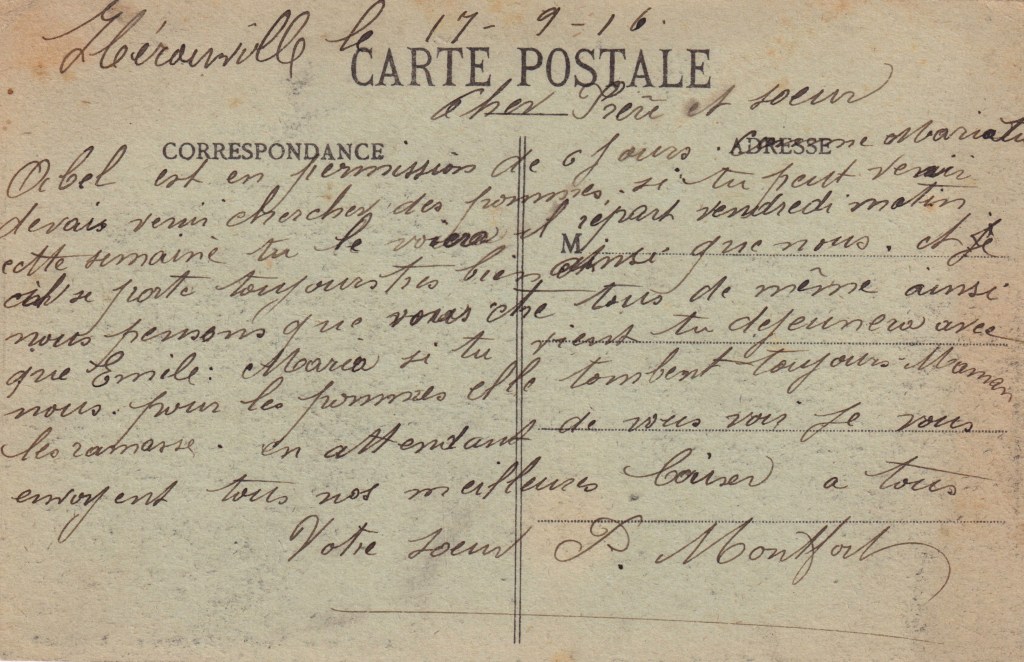 Hérouville le 17-9-16.
CARTE POSTALE
Cher Frère et soeur
CORRESPONDANCE
ADRESSE
est en permission de 6 jours. Comme Maria tu
devais venir chercher des pommes. si tu peut venir
cette semaine tu le voiera il répart vendredi matin
M
il se porte toujours tres bien ainsi que nous. et je
nous pensons que vous ete tous de même ainsi
que Emile: Maria si tu vient tu dejeunera avec
nous. pour les pommes elle tombent toujours Maman
les ramasse. en attendant de vous voir je vous
envoyent tous nos meilleures baiser a tous
Votre soeur P. Montfort